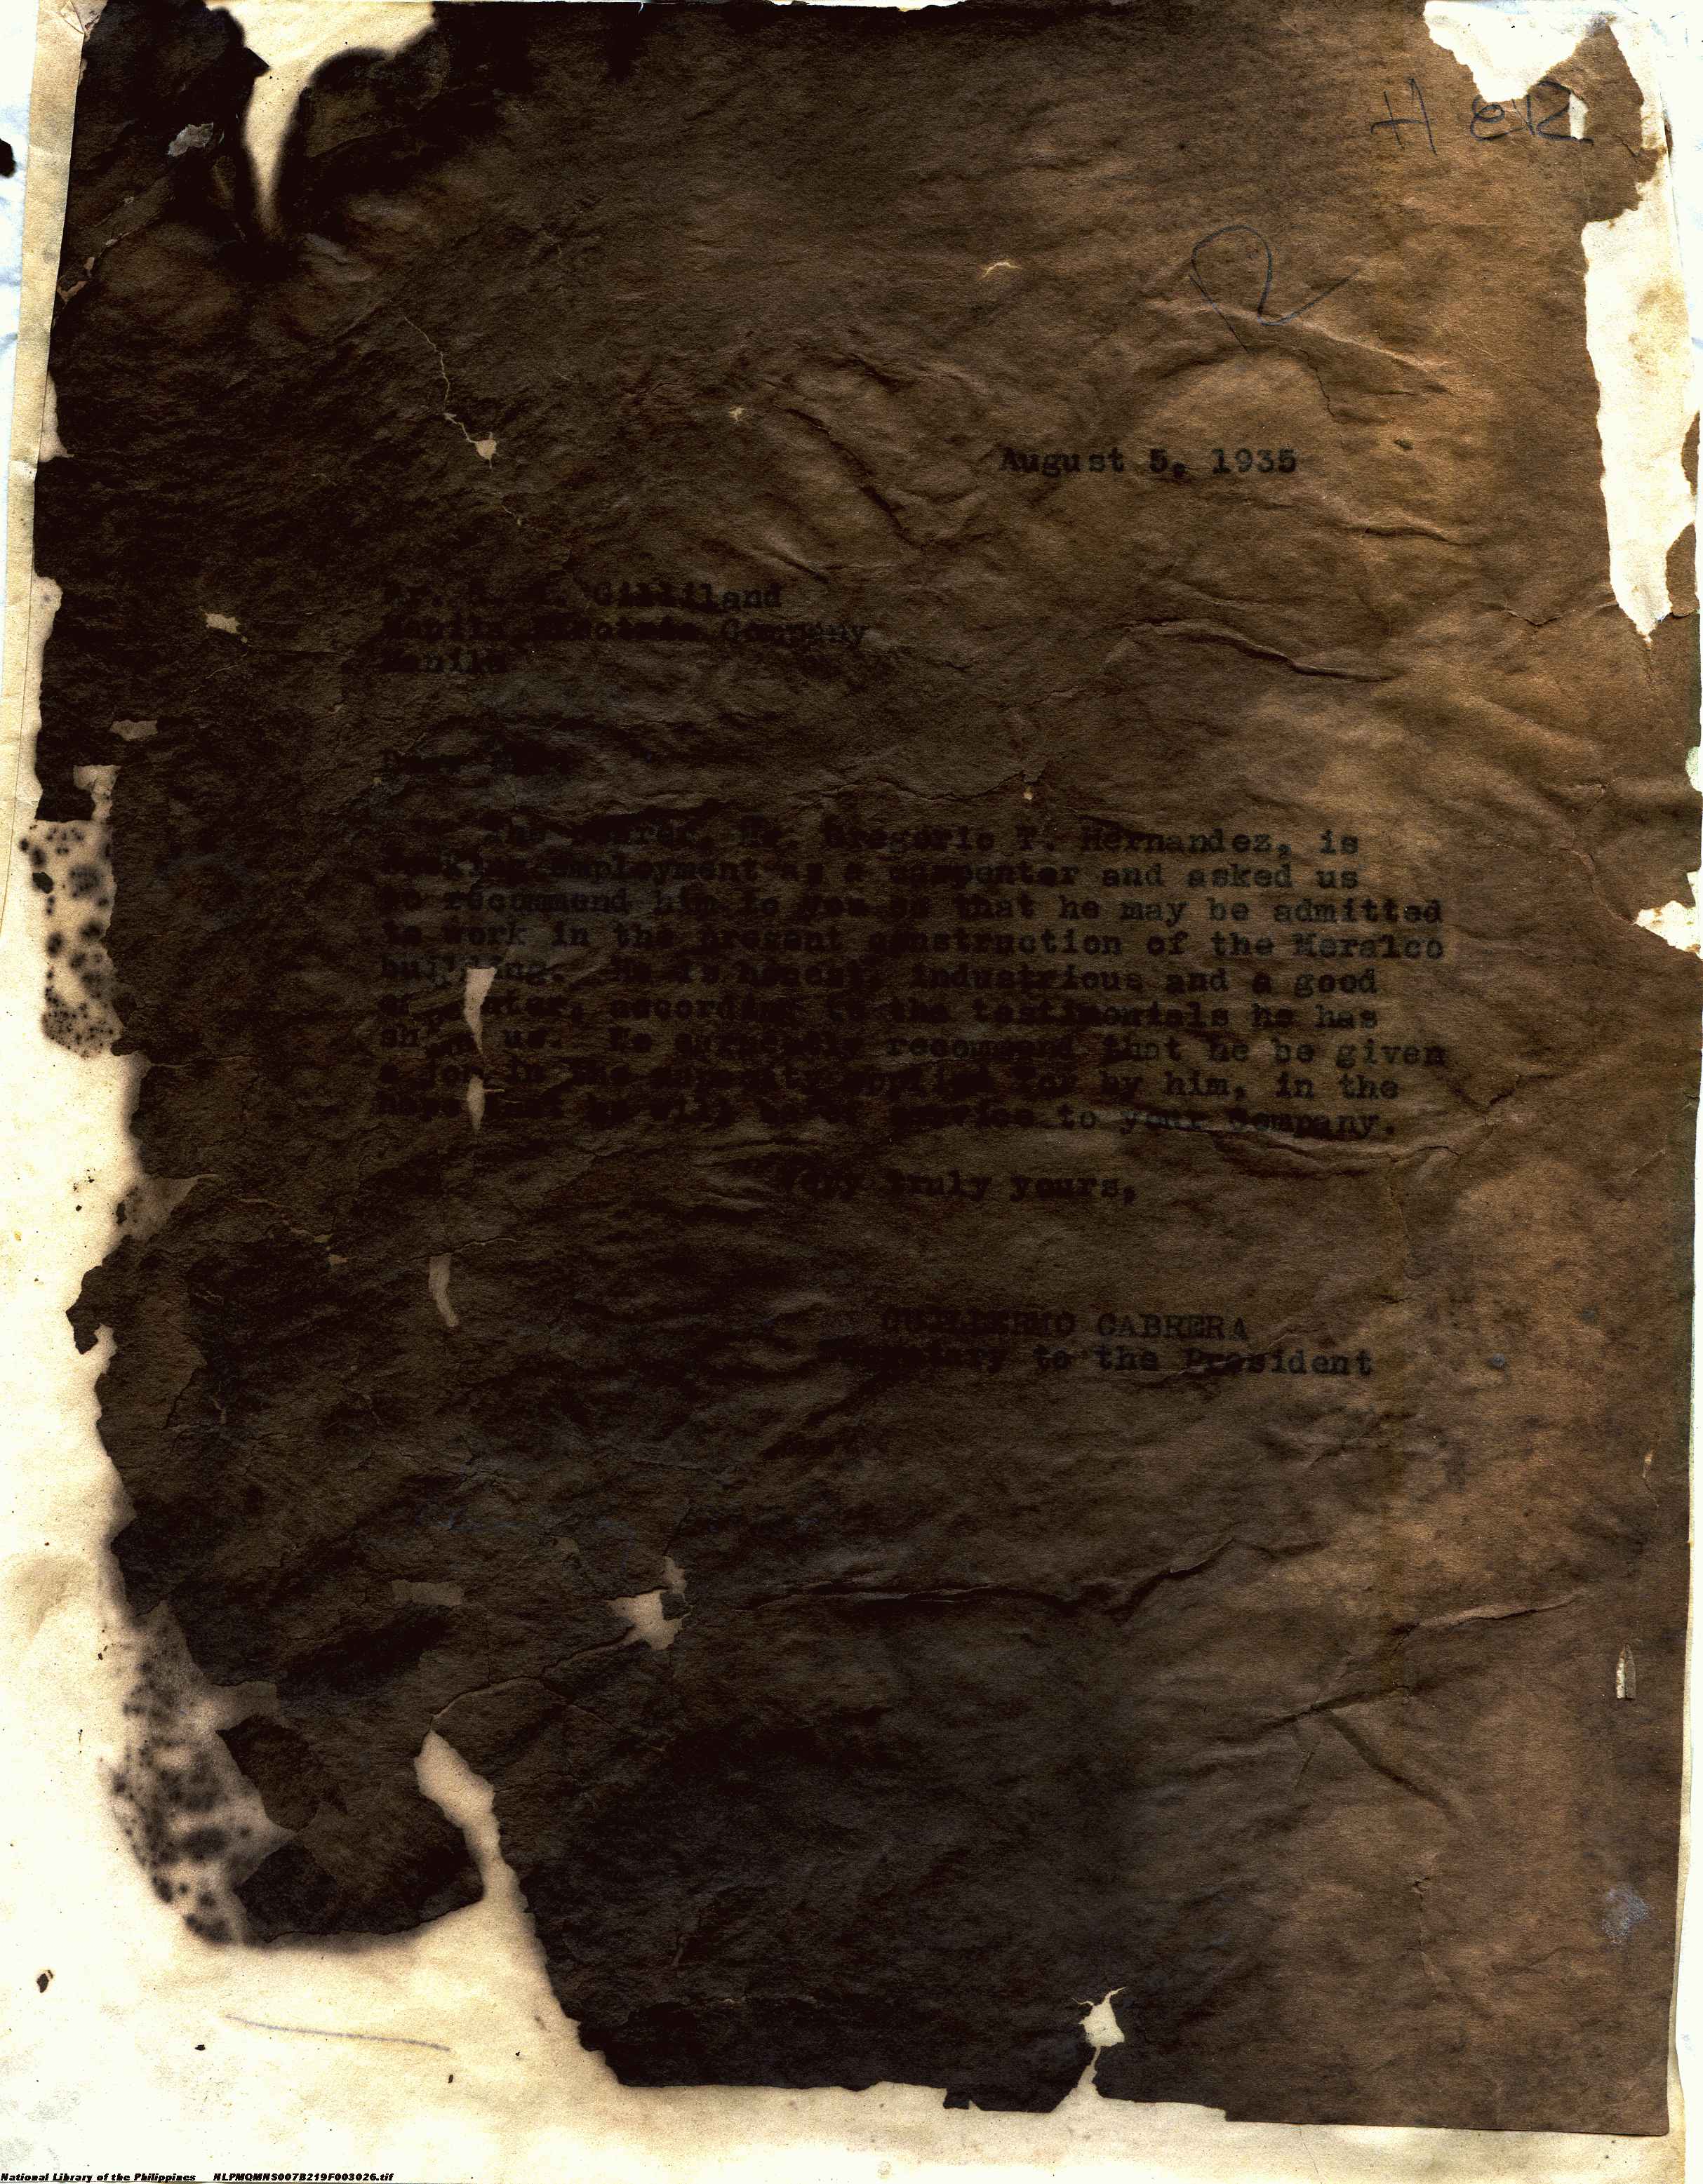 HER
August 5, 1935
Mr. Gilliland
Manila Company
Manila
Gregorio T. Hernandez, is
employment as a carpenter and asked us
to recommend him to you so that he may be admitted
to work in the present construction of the Meralco
building. He is honest, industrious and a good
according to the testimonials he has
us. We recommend that he be given
a job in the capacity applied for by him, in the
service to your Company.
Very truly yours,
GUILLERMO CABRERA
Secretary to the President
National Library of the Philippines NLPMQMNS007B219F003026.tif